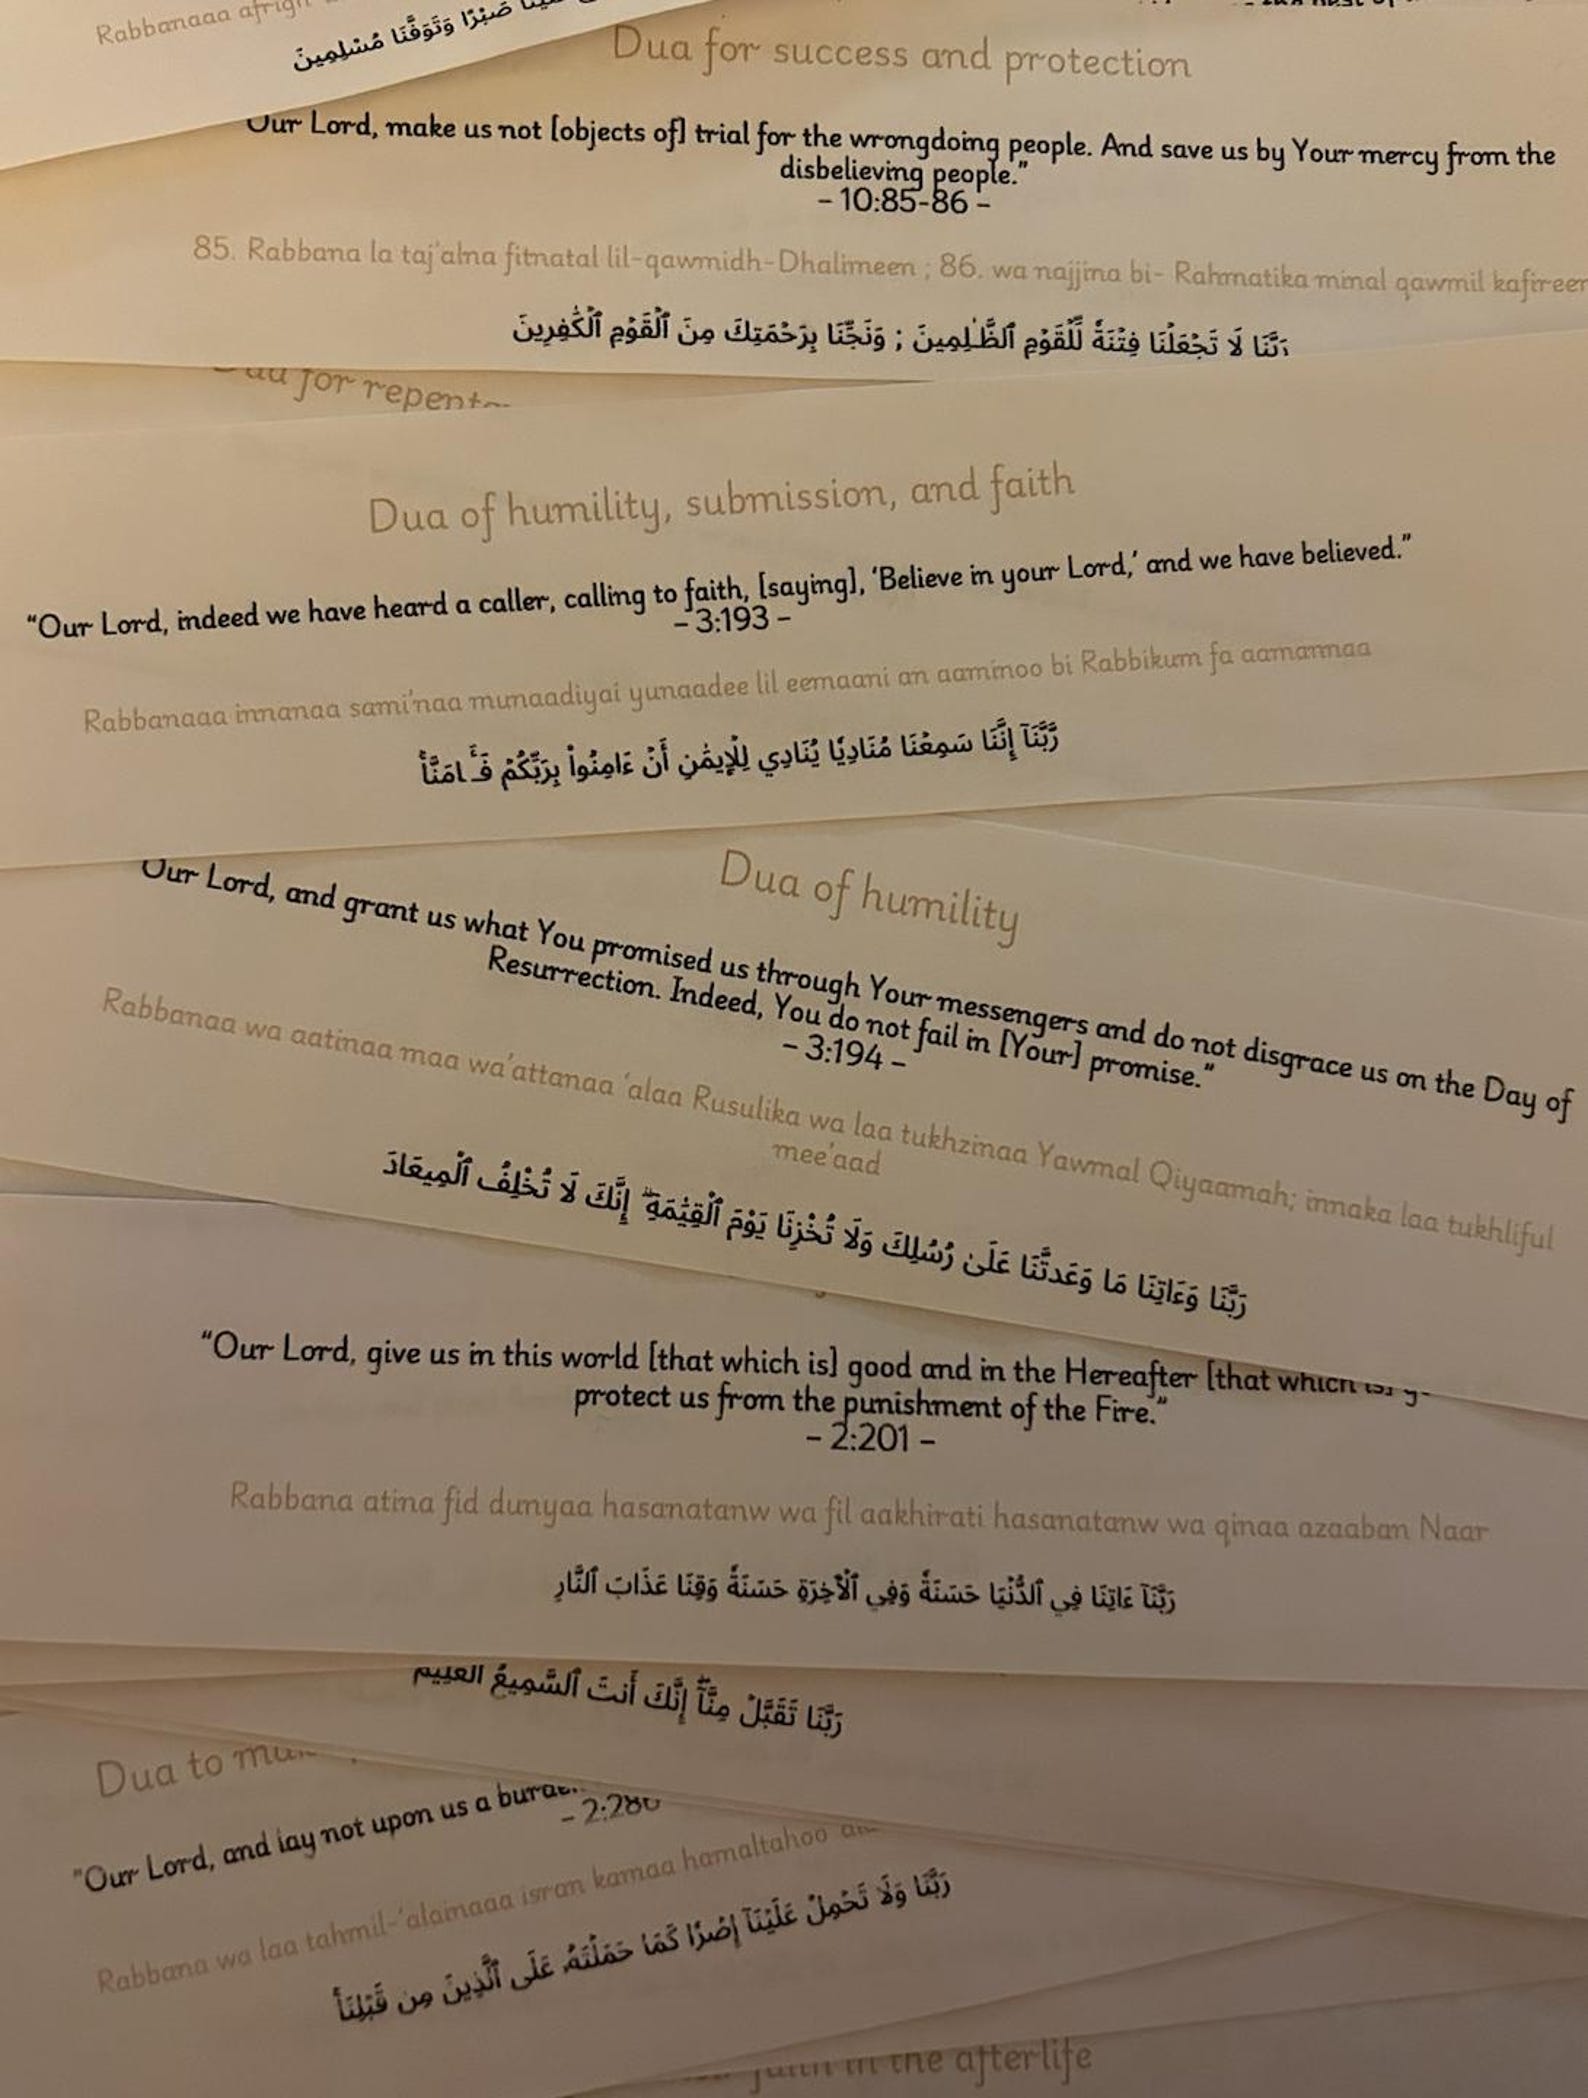 Rabbanaaa afrigh
صَبْرًا وَتَوَفَّنَا مُسْلِمِينَ
Dua for success and protection
Our Lord, make us not [objects of] trial for the wrongdoing people. And save us by Your mercy from the
disbelieving people.”
– 10:85-86 –
85. Rabbana la taj'alna fitnatal lil-qawmidh-Dhalimeen ; 86. wa najjina bi- Rahmatika minal qawmil kafireen
رَبَّنَا لَا تَجْعَلْنَا فِتْنَةً لِّلْقَوْمِ ٱلظَّـٰلِمِينَ ; وَنَجِّنَا بِرَحْمَتِكَ مِنَ ٱلْقَوْمِ ٱلْكَـٰفِرِينَ
for
Dua of humility, submission, and faith
“Our Lord, indeed we have heard a caller, calling to faith, [saying], ‘Believe in your Lord,’ and we have believed.”
– 3:193 –
Rabbanaaa innanaa sami'naa munaadiyai yunaadee lil eemaani an aaminoo bi Rabbikum fa aamannaa
رَّبَّنَآ إِنَّنَا سَمِعْنَا مُنَادِيًا يُنَادِي لِلْإِيمَـٰنِ أَنْ ءَامِنُوا۟ بِرَبِّكُمْ فَـَٔامَنَّا
Dua of humility
Our Lord, and grant us what You promised us through Your messengers and do not disgrace us on the Day of
Resurrection. Indeed, You do not fail in [Your] promise.”
– 3:194 –
Rabbanaa wa aatinaa maa wa'attanaa 'alaa Rusulika wa laa tukhzinaa Yawmal Qiyaamah; innaka laa tukhliful
mee'aad
رَبَّنَا وَءَاتِنَا مَا وَعَدتَّنَا عَلَىٰ رُسُلِكَ وَلَا تُخْزِنَا يَوْمَ ٱلْقِيَـٰمَةِ ۗ إِنَّكَ لَا تُخْلِفُ ٱلْمِيعَادَ
“Our Lord, give us in this world [that which is] good and in the Hereafter [that which is]
protect us from the punishment of the Fire.”
– 2:201 –
Rabbana atina fid dunyaa hasanatanw wa fil aakhirati hasanatanw wa qinaa azaaban Naar
رَبَّنَآ ءَاتِنَا فِي ٱلدُّنْيَا حَسَنَةً وَفِي ٱلْـَٔاخِرَةِ حَسَنَةً وَقِنَا عَذَابَ ٱلنَّارِ
رَبَّنَا تَقَبَّلْ مِنَّآ ۖ إِنَّكَ أَنتَ ٱلسَّمِيعُ ٱلْعَلِيمُ
Dua to
"Our Lord, and lay not upon us a
– 2:286
Rabbana wa laa tahmil-'alainaaa isran kamaa hamaltahoo
رَبَّنَا وَلَا تَحْمِلْ عَلَيْنَآ إِصْرًا كَمَا حَمَلْتَهُۥ عَلَى ٱلَّذِينَ مِن قَبْلِنَا
faith in the afterlife